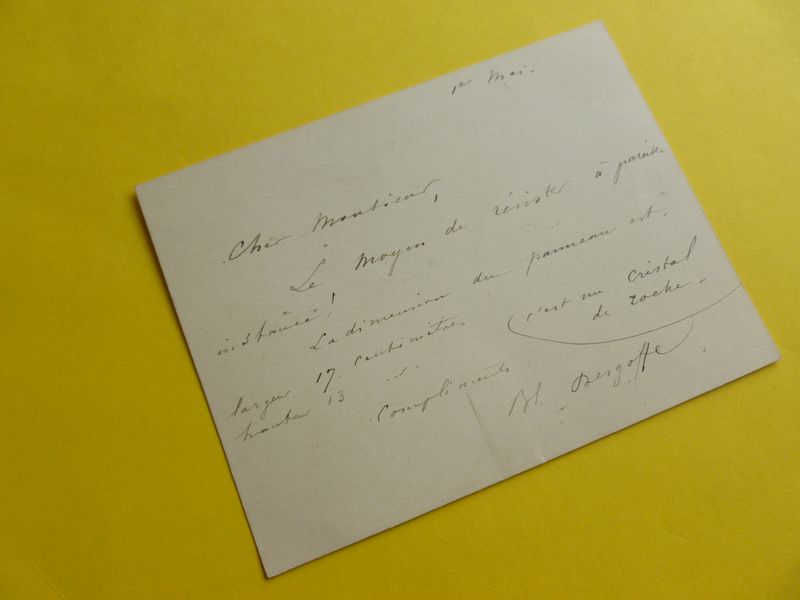 1er Mai.
Cher Monsieur,
Le moyen de résister à pareille
instance!
La dimension du panneau est.
largeur. 17. centimètres
hauteur 13 " .
c'est un cristal
de roche.
Compliments
Bl. Desgoffe.